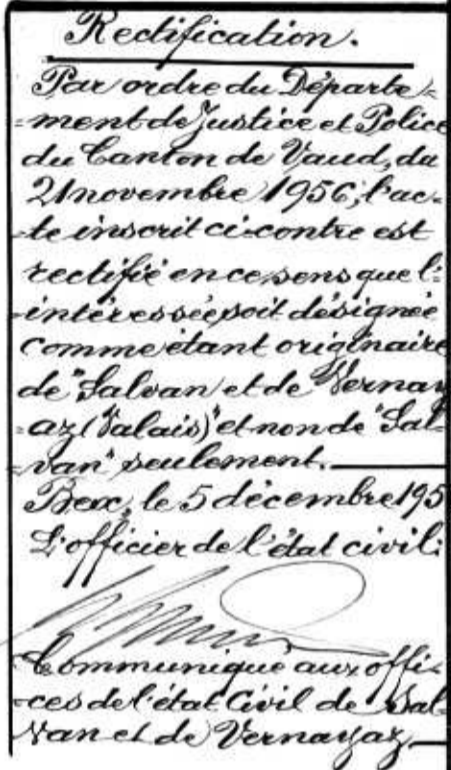 Rectification.
Par ordre du Départe-
=ment de Justice et Police
du Canton de Vaud, du
21 novembre 1956, l'ac-
-te inscrit ci-contre est
rectifié en ce sens que l'-
-intéressée soit désignée
comme étant originaire
de "Salvan et de Vernay
=az (Valais)" et non de "Sal-
-van" seulement.
Bex, le 5 décembre 195
L'officier de l'état civil:
Communiqué aux offi-
-ces de l'état civil de Sal-
van et de Vernayaz